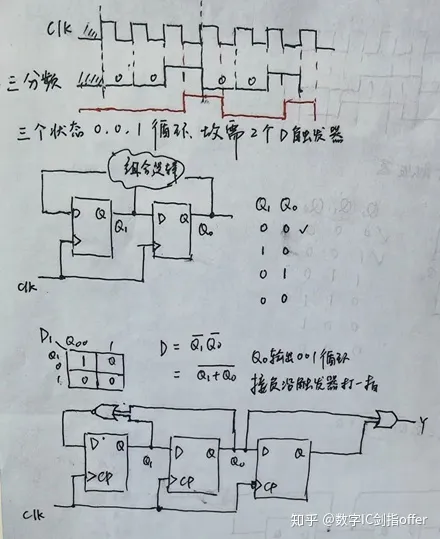 Clk
三分频
0 0 0 0
三个状态 0.0.1 循环, 故需 2 个 D 触发器
组合逻辑
D Q Q₁ D Q Q₀
Clk
Q₁ Q₀
0 0 ✓
1 0
0 1
0 0
D₁ Q₀ 0 1
Q₁
0 1 0
1 0 0
D = \overline{Q₁} \overline{Q₀}
= \overline{Q₁+Q₀}
Q₀输出001循环
接负沿触发器打一拍
D Q Q₁ D Q Q₀ D Q Y
CP CP CP
Clk
知乎 @数字IC剑指offer